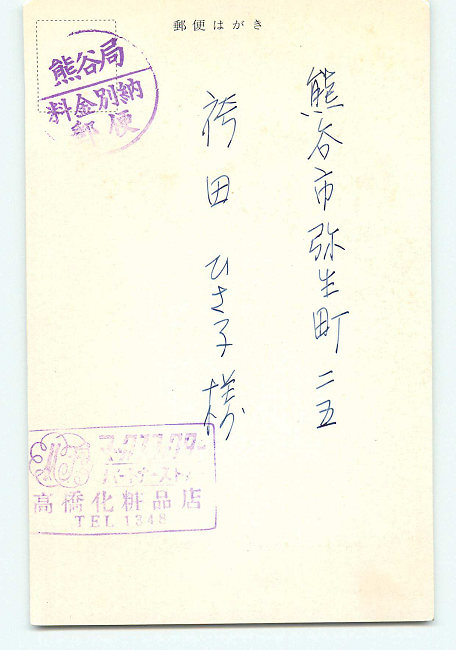 郵便はがき
熊谷局
料金別納
郵便
熊谷市弥生町二五
袴田ひさ子様
マックスファクター
高橋化粧品店
TEL 1348